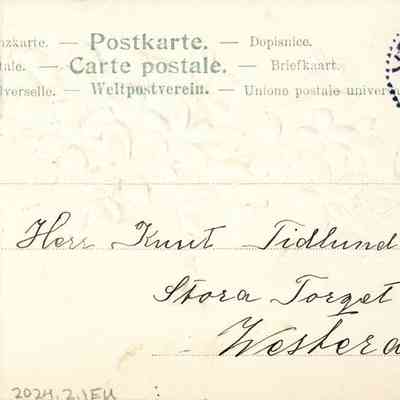 nzkarte. — Postkarte. — Dopisnice.
tale. — Carte postale. — Briefkaart.
lverselle. — Weltpostverein. — Unione postale univers
Herr Knut Tidlund
Stora Torget
Westera
2024.2.1EU